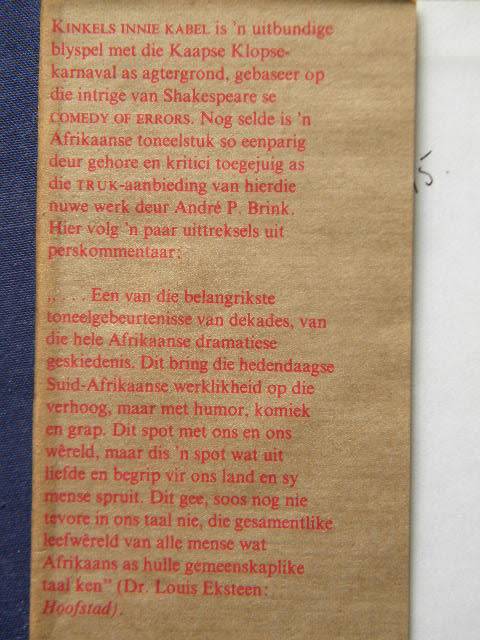 KINKELS INNIE KABEL is 'n uitbundige
blyspel met die Kaapse Klopse-
karnaval as agtergrond, gebaseer op
die intrige van Shakespeare se
COMEDY OF ERRORS. Nog selde is 'n
Afrikaanse toneelstuk so eenparig
deur gehore en kritici toegejuig as
die TRUK-aanbieding van hierdie
nuwe werk deur André P. Brink.
Hier volg 'n paar uittreksels uit
perskommentaar:
„. . . Een van die belangrikste
toneelgebeurtenisse van dekades, van
die hele Afrikaanse dramatiese
geskiedenis. Dit bring die hedendaagse
Suid-Afrikaanse werklikheid op die
verhoog, maar met humor, komiek
en grap. Dit spot met ons en ons
wêreld, maar dis 'n spot wat uit
liefde en begrip vir ons land en sy
mense spruit. Dit gee, soos nog nie
tevore in ons taal nie, die gesamentlike
leefwêreld van alle mense wat
Afrikaans as hulle gemeenskaplike
taal ken” (Dr. Louis Eksteen:
Hoofstad).